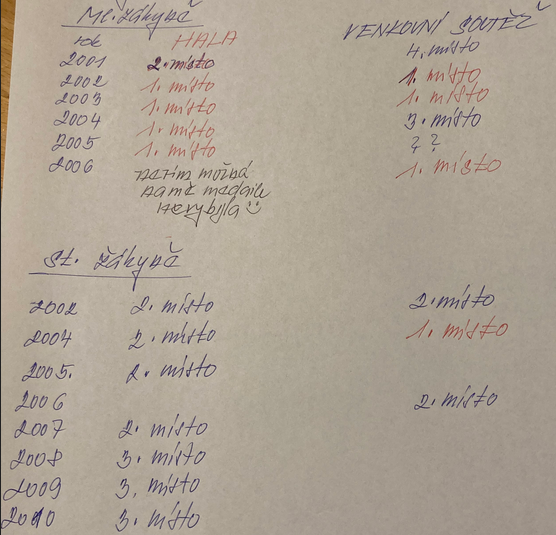 Ml. žákyně
rok HALA VENKOVNÍ SOUTĚŽ
2001 2. místo 4. místo
2002 1. místo 1. místo
2003 1. místo 1. místo
2004 1. místo 3. místo
2005 1. místo ? ?
2006 nevím možná 1. místo
na mě medaile
nezbyla
St. žákyně
2002 2. místo 2. místo
2004 2. místo 1. místo
2005. 2. místo
2006 2. místo
2007 2. místo
2008 3. místo
2009 3. místo
2010 3. místo